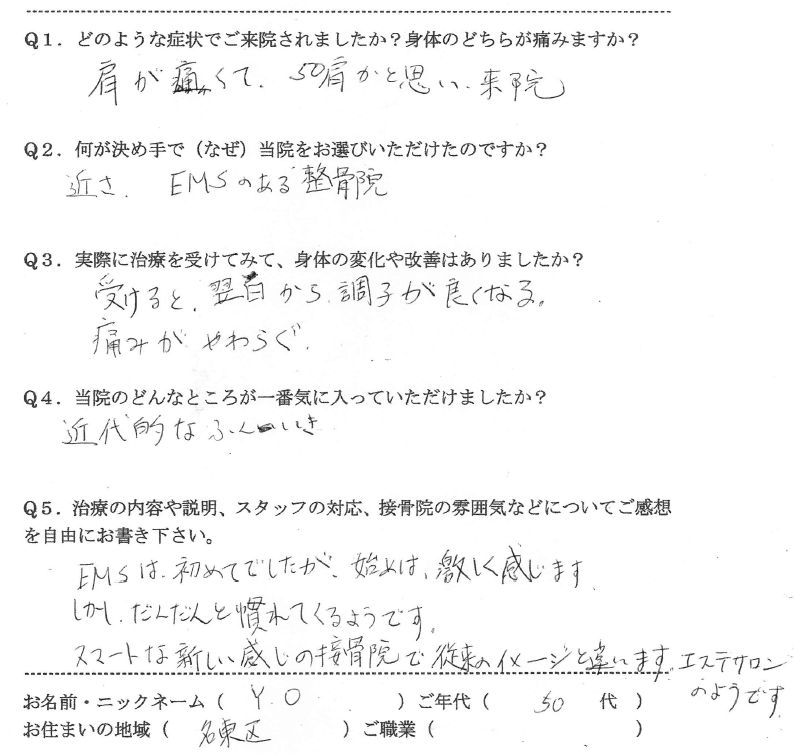 Q1．どのような症状でご来院されましたか？身体のどちらが痛みますか？
肩が痛くて、50肩かと思い、来院
Q2．何が決め手で（なぜ）当院をお選びいただけたのですか？
近さ、EMSのある整骨院
Q3．実際に治療を受けてみて、身体の変化や改善はありましたか？
受けると、翌日から調子が良くなる。
痛みがやわらぐ。
Q4．当院のどんなところが一番気に入っていただけましたか？
近代的なふんいき
Q5．治療の内容や説明、スタッフの対応、接骨院の雰囲気などについてご感想
を自由にお書き下さい。
EMSは、初めてでしたが、始めは、激しく感じます
しかし、だんだんと慣れてくるようです。
スマートな新しい感じの接骨院で従来のイメージと違います。エステサロン
のようです
お名前・ニックネーム（ Y.O ）ご年代（ 50 代 ）
お住まいの地域（ 名東区 ）ご職業（ ）